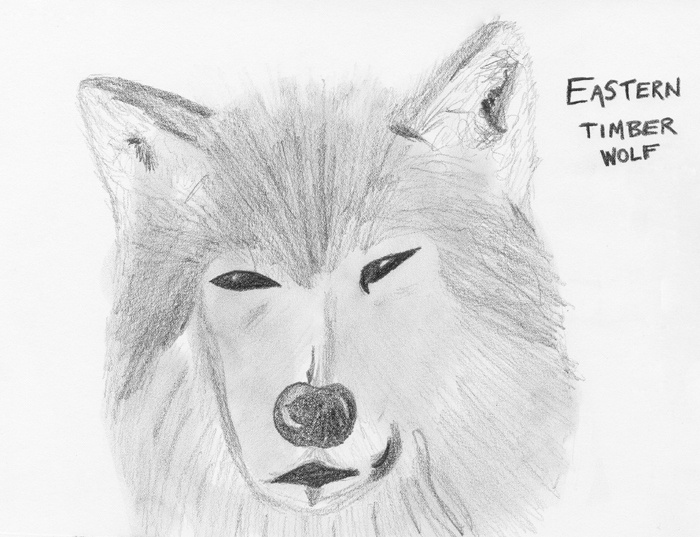 EASTERN
TIMBER
WOLF